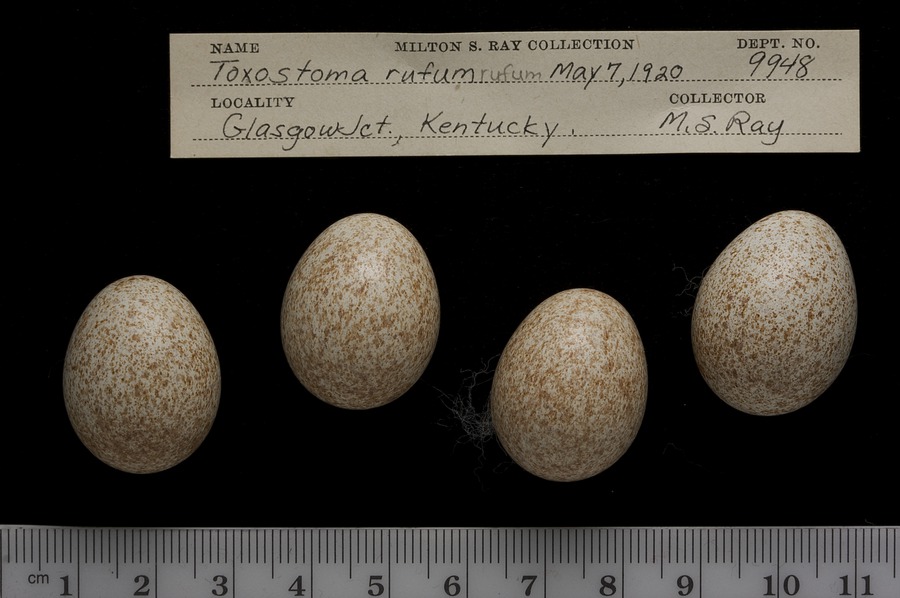 NAME MILTON S. RAY COLLECTION DEPT. NO.
Toxostoma rufum rufum May 7, 1920 9948
LOCALITY COLLECTOR
Glasgow Jct., Kentucky. M. S. Ray
cm 1 2 3 4 5 6 7 8 9 10 11